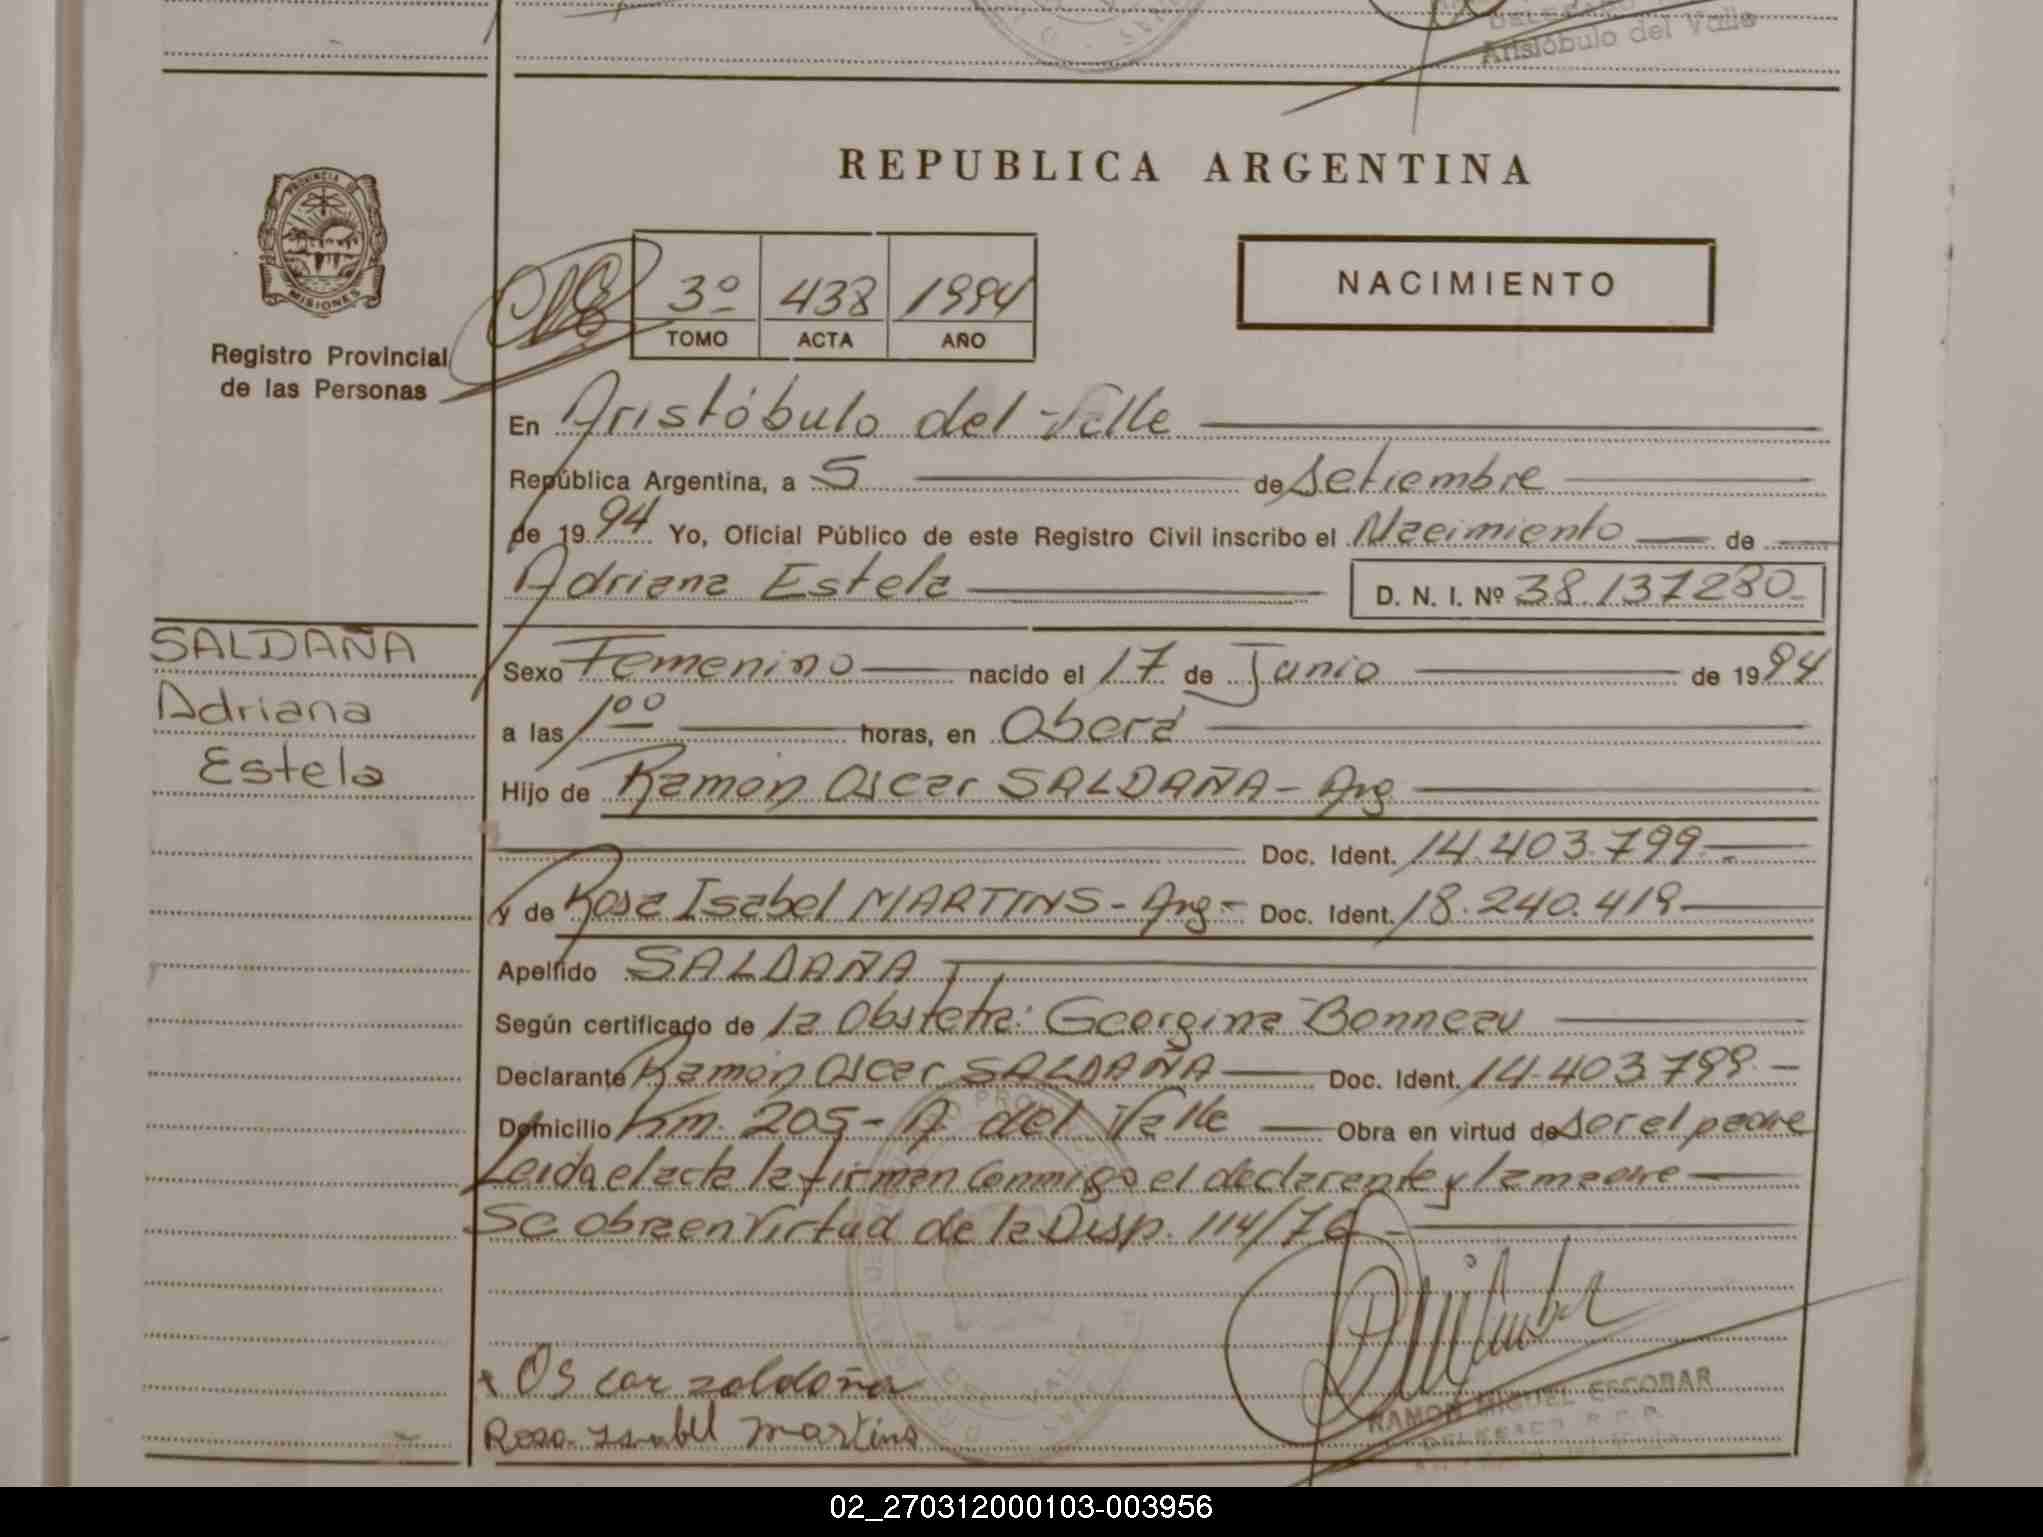 Aristóbulo del Valle
REPUBLICA ARGENTINA
PROVINCIA DE
MISIONES
Registro Provincial
de las Personas
3º 438 1994
TOMO ACTA AÑO
NACIMIENTO
En Aristóbulo del Valle
República Argentina, a 5 de Setiembre
de 1994 Yo, Oficial Público de este Registro Civil inscribo el Nacimiento de
Adriana Estela D. N. I. Nº 38.137280
SALDAÑA
Adriana
Estela
Sexo Femenino nacido el 17 de Junio de 1994
a las 1⁰⁰ horas, en Oberá
Hijo de Ramón Oscar SALDAÑA - Arg
Doc. Ident. 14.403.799.-
y de Rosa Isabel MARTINS - Arg - Doc. Ident. 18.240.419
Apellido SALDAÑA
Según certificado de la Obstetra: Georgina Bonneau
Declarante Ramón Oscar SALDAÑA Doc. Ident. 14.403.799.-
Domicilio Km. 205 - A. del Valle Obra en virtud de ser el padre
Leida el acta la firman conmigo el declarante y la madre
Se obra en virtud de la Disp. 114/76 -
Oscar zaldaña
Rosa Isabel Martins
RAMON MIGUEL ESCOBAR
DELEGADO R.C.P.
02_270312000103-003956